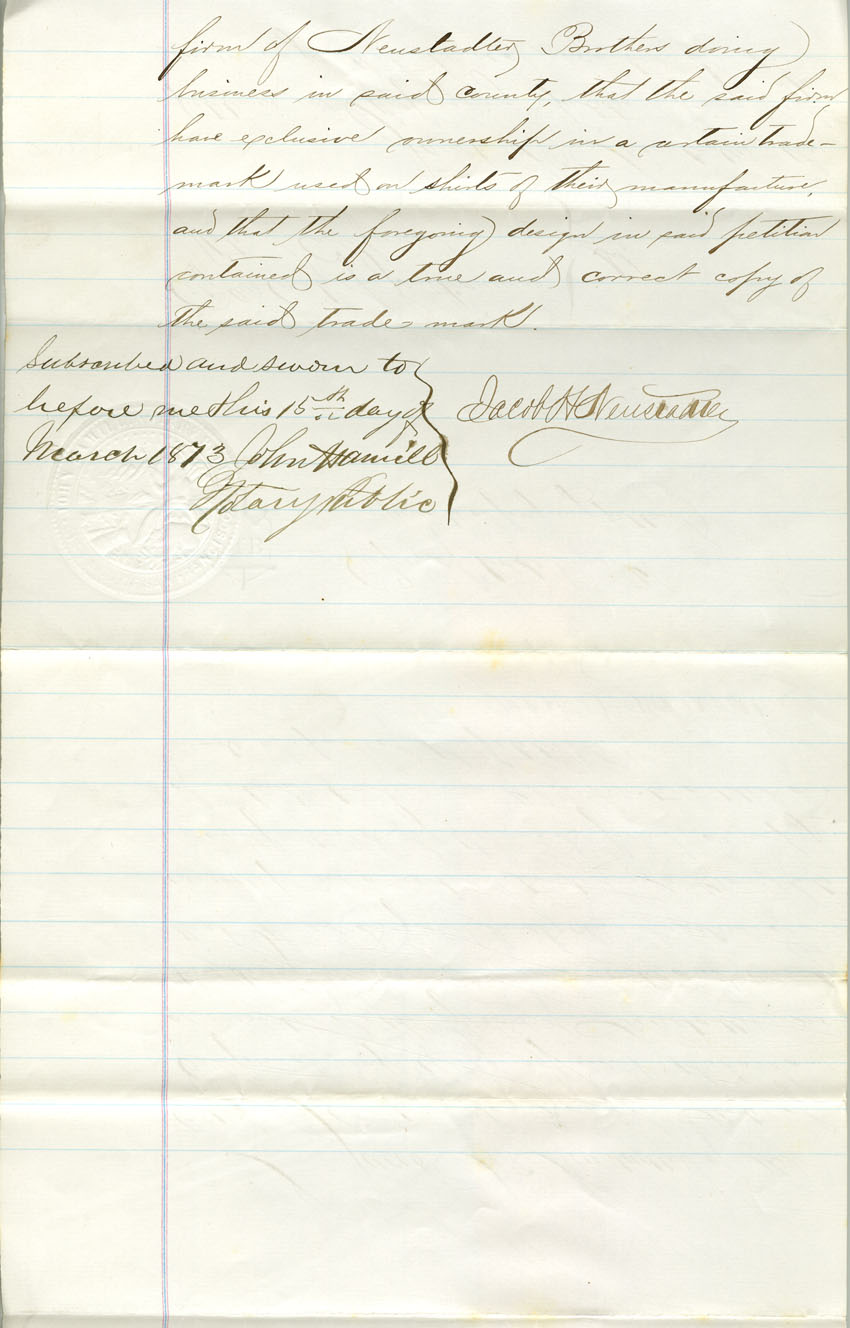 firm of Neustadter Brothers doing
business in said county, that the said firm
have exclusive ownership in a certain trade-
mark used on shirts of their manufacture,
and that the foregoing design in said petition
contained is a true and correct copy of
the said trade-mark.
Subscribed and sworn to
before me this 15th day of
March 1873 John Hamill
Notary Public
Jacob H Neustadter